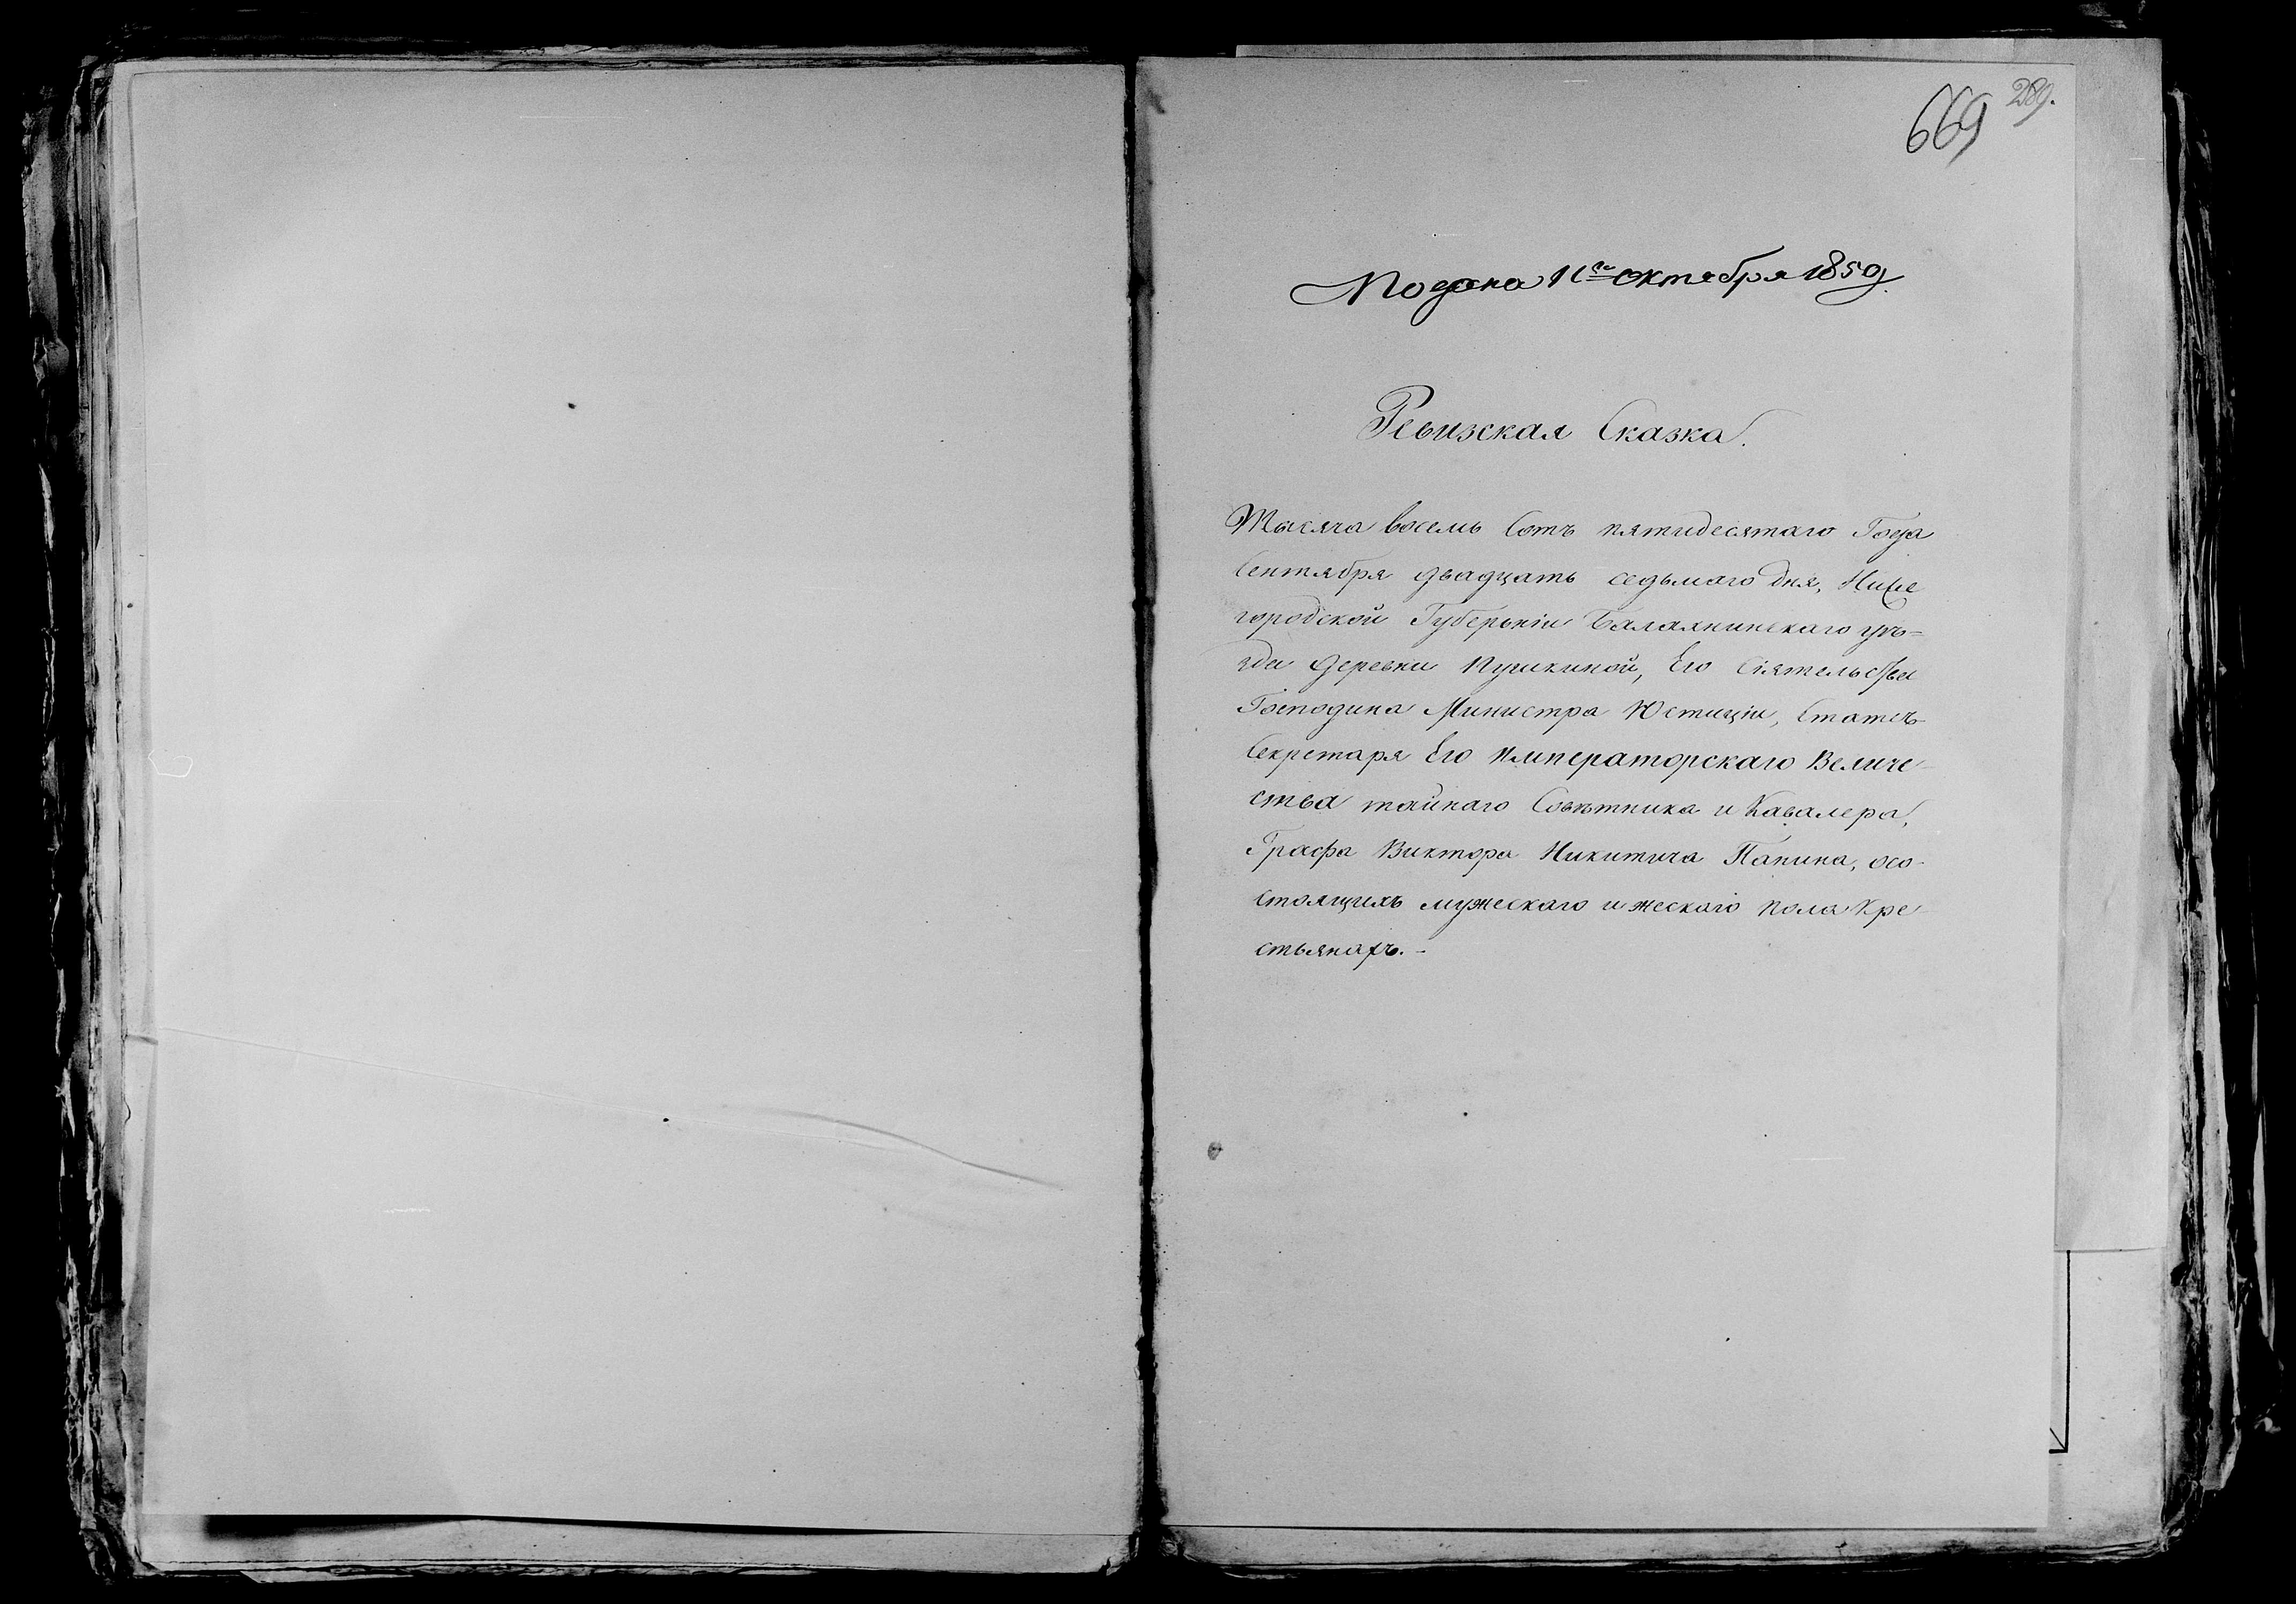 669 289.
Подана 11го октября 1850 г.
Ревизская Сказка.
Тысяча восемь Сотъ пятидесятаго Года
Сентября двадцать седьмаго дня, Ниже
городской Губерніи Балахнинскаго уѣ=
зда деревни Пушкиной, Его Сіятельства
Господина Министра Юстиціи, Статсъ-
Секретаря Его Императорскаго Величе-
ства тайнаго Совѣтника и Кавалера,
Графа Виктора Никитича Панина, осо-
стоящихъ мужескаго и жескаго пола Кре-
стьянахъ.-